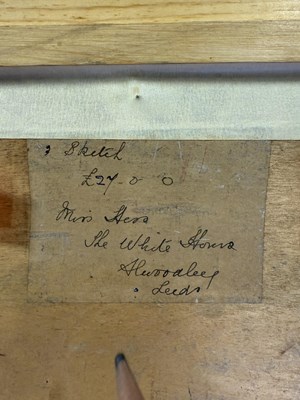 : Sketch
£27-0 0
Miss Hess
The White House
Alwoodley
Leeds